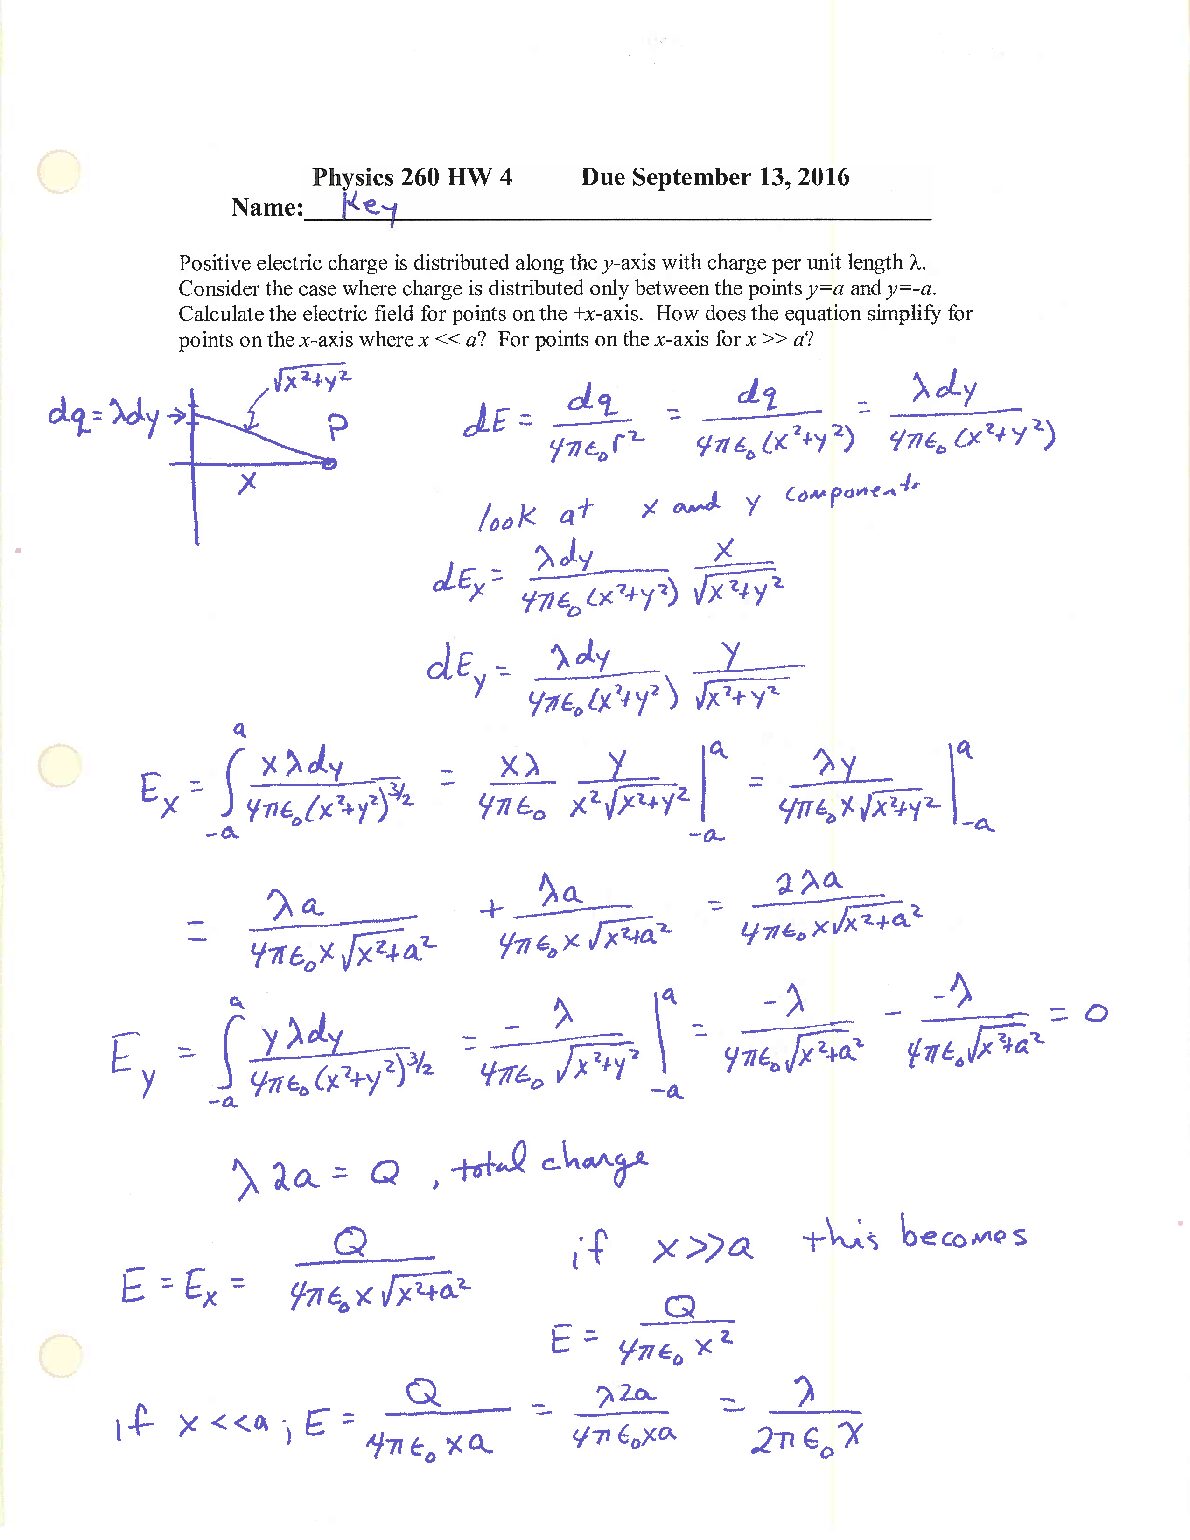 Physics 260 HW 4 Due September 13, 2016
Name: Key
Positive electric charge is distributed along the y-axis with charge per unit length λ.
Consider the case where charge is distributed only between the points y=a and y=-a.
Calculate the electric field for points on the +x-axis. How does the equation simplify for
points on the x-axis where x << a? For points on the x-axis for x >> a?
√(x²+y²)
dq = λdy →
P
x
dE = dq/(4πε₀r²) = dq/(4πε₀(x²+y²)) = λdy/(4πε₀(x²+y²))
look at x and y components
dEₓ = λdy/(4πε₀(x²+y²)) x/√(x²+y²)
dE_y = λdy/(4πε₀(x²+y²)) y/√(x²+y²)
Eₓ = ∫_{-a}^{a} xλdy/(4πε₀(x²+y²)^{3/2}) = xλ/(4πε₀) y/(x²√(x²+y²)) |_{-a}^{a} = λy/(4πε₀x√(x²+y²)) |_{-a}^{a}
= λa/(4πε₀x√(x²+a²)) + λa/(4πε₀x√(x²+a²)) = 2λa/(4πε₀x√(x²+a²))
E_y = ∫_{-a}^{a} yλdy/(4πε₀(x²+y²)^{3/2}) = -λ/(4πε₀√(x²+y²)) |_{-a}^{a} = -λ/(4πε₀√(x²+a²)) - -λ/(4πε₀√(x²+a²)) = 0
λ2a = Q, total charge
E = Eₓ = Q/(4πε₀x√(x²+a²)) if x>>a this becomes
E = Q/(4πε₀x²)
if x<<a ; E = Q/(4πε₀xa) = λ2a/(4πε₀xa) = λ/(2πε₀x)